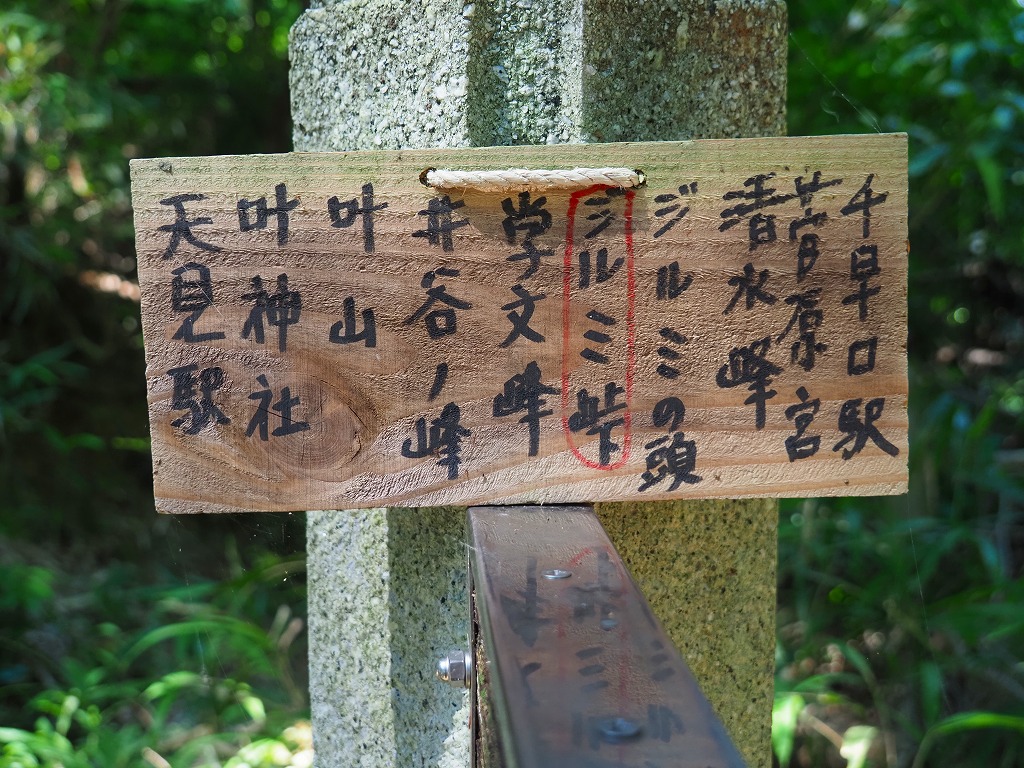 千早口駅
菅原宮
春水峰
ジルミの頭
ジルミ峠
学文峰
井谷ノ峰
叶山
叶神社
天見駅